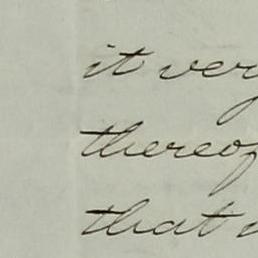 it very
thereof
that